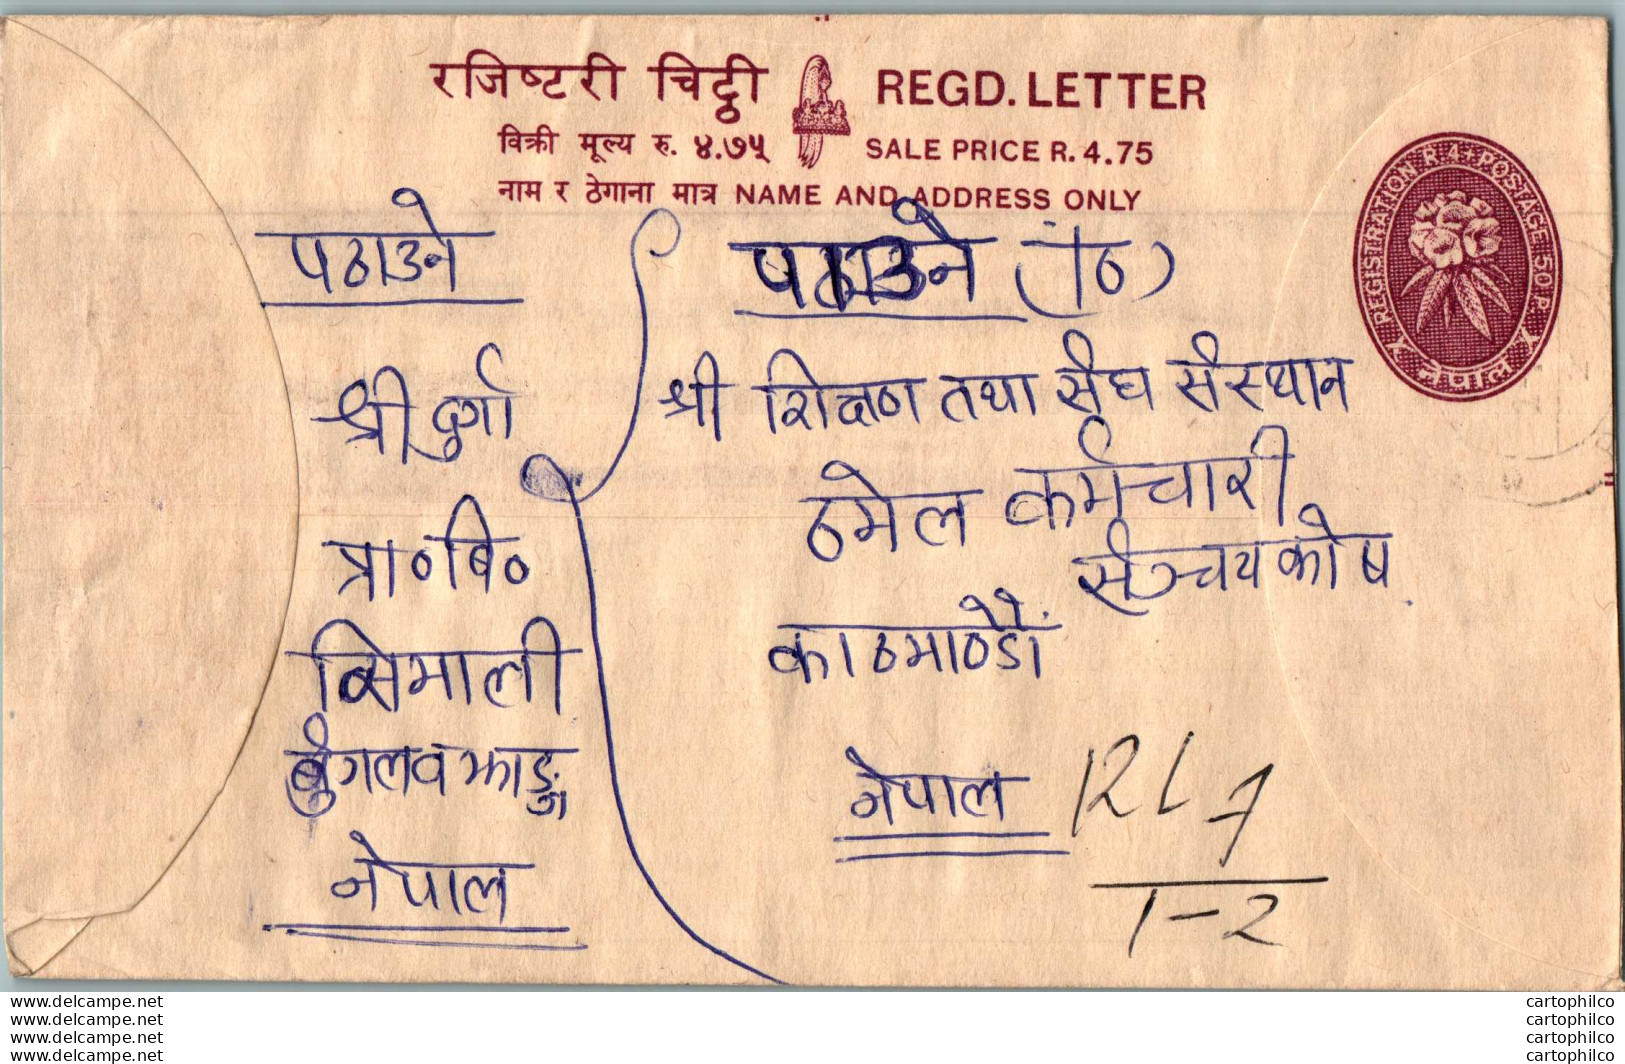 रजिष्टरी चिट्ठी REGD. LETTER
विक्री मूल्य रु. ४.७५ SALE PRICE R. 4.75
नाम र ठेगाना मात्र NAME AND ADDRESS ONLY
REGISTRATION R 4 POSTAGE 50 P.
नेपाल
पठाउने
श्री दुर्गा
प्रा०बि०
सिमाली
बुंगल वझाङ्ग
नेपाल
पठाउने
श्री शिक्षण तथा संघ संस्थान
ठमेल कर्मचारी
संञ्चयकोष
काठमाण्डौं
नेपाल
RL 7
1-2
www.delcampe.net
www.delcampe.net
www.delcampe.net
www.delcampe.net
cartophilco
cartophilco
cartophilco
cartophilco